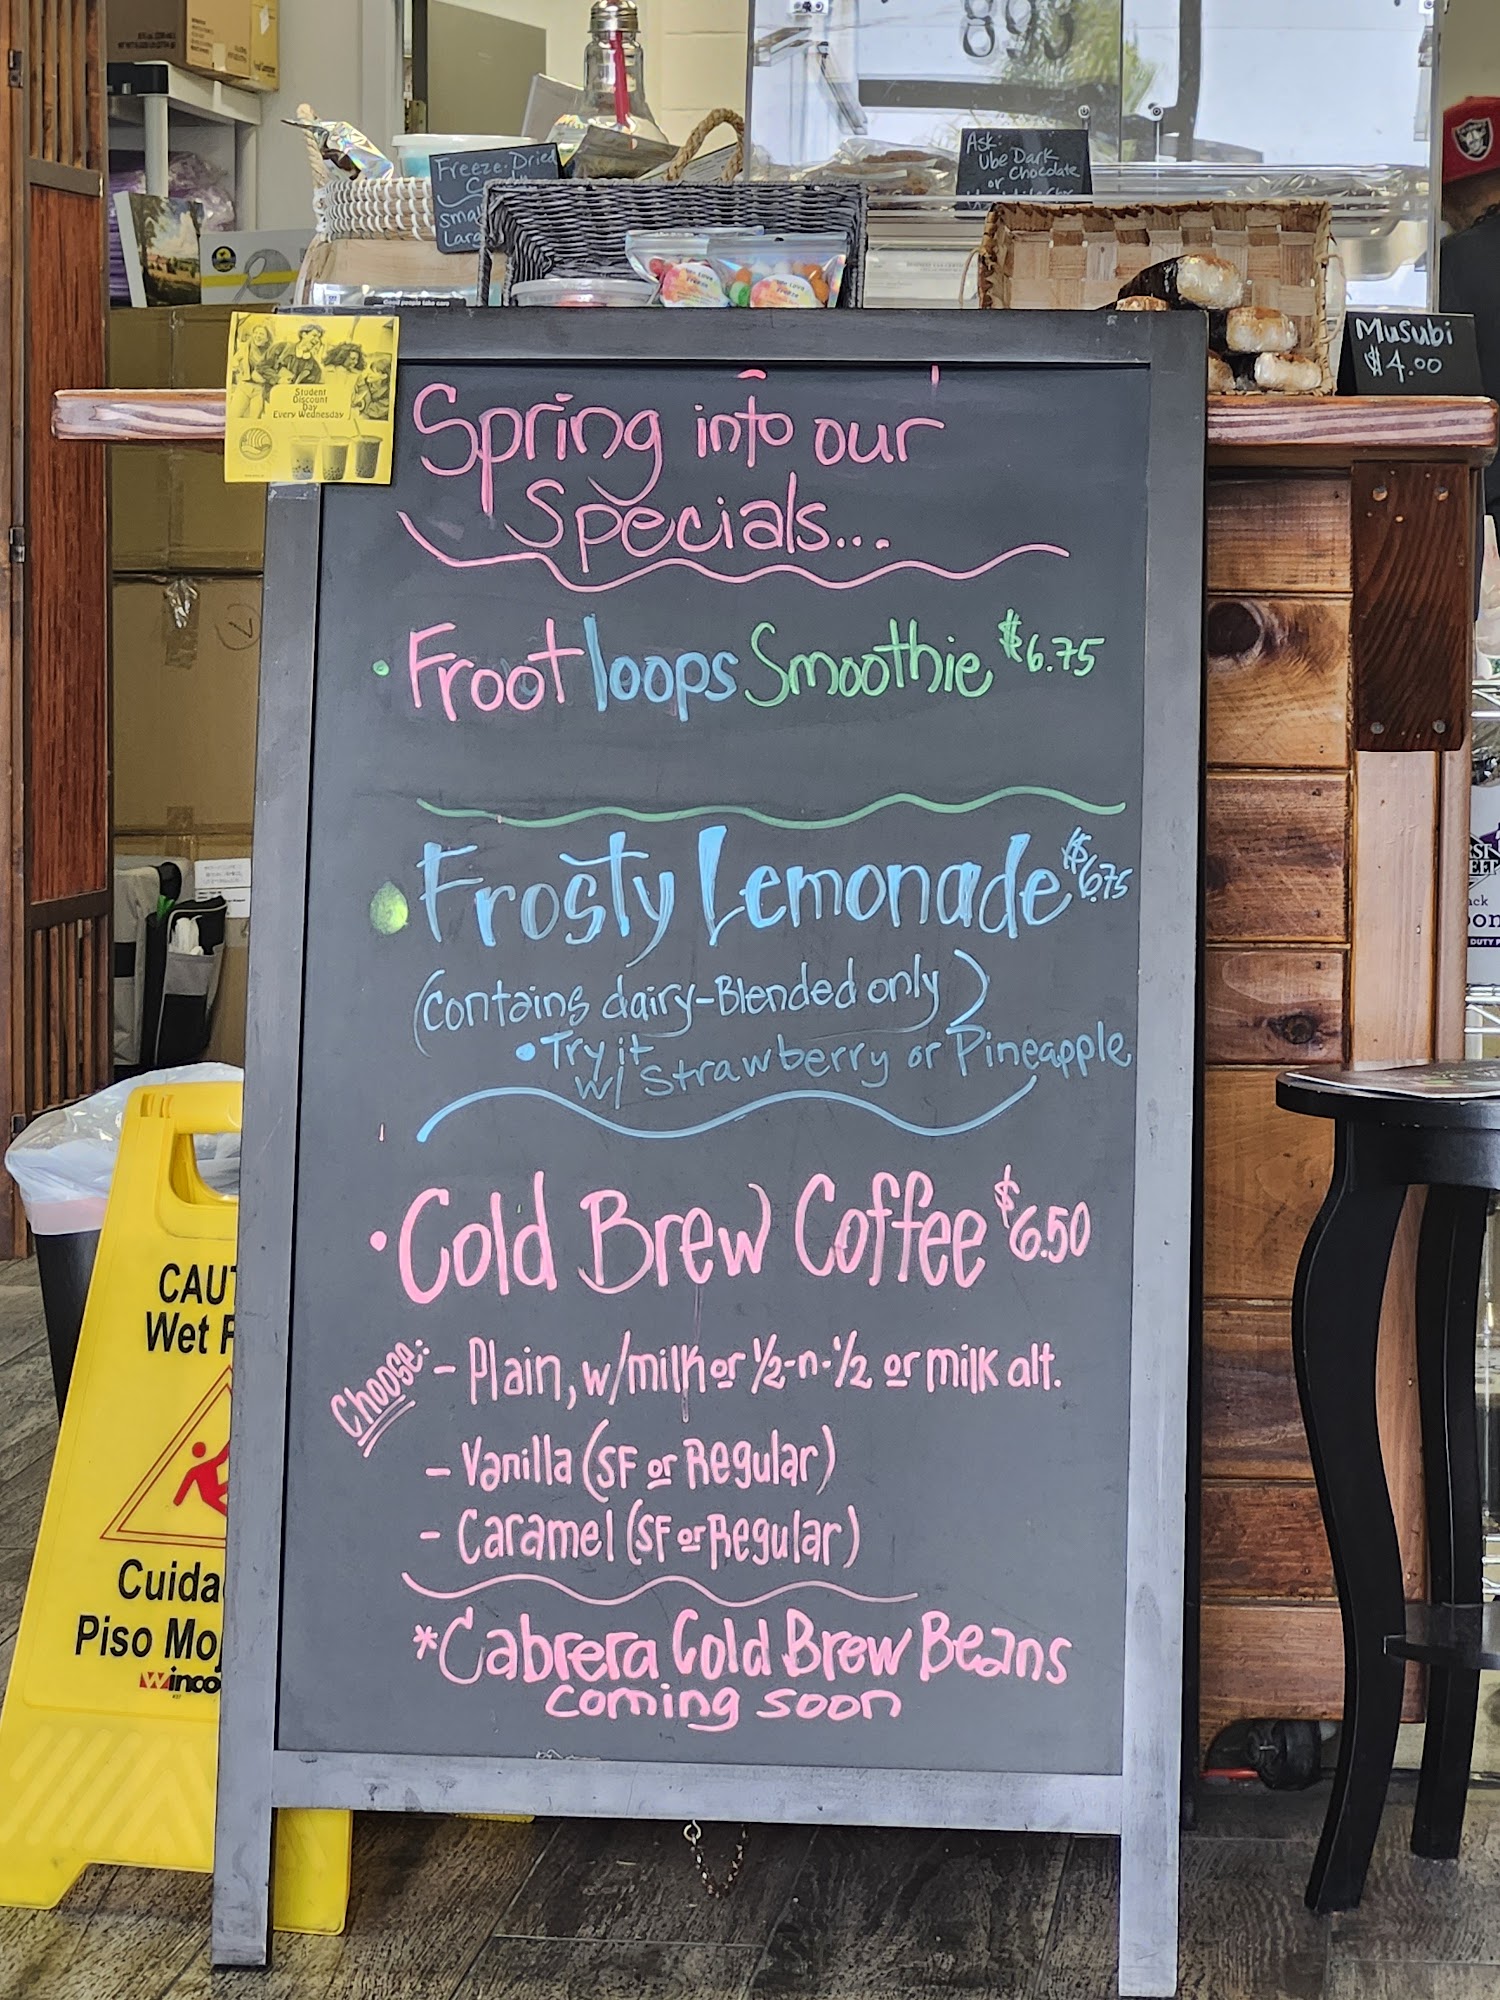 893
Freeze-Dried
Ask:
Ube Dark
Chocolate
or
Good people take care
Musubi
$4.00
Student
Discount
Day
Every Wednesday
Spring into our
Specials...
• Froot loops Smoothie $6.75
Frosty Lemonade $6.75
(Contains dairy-Blended only)
• Try it
w/ Strawberry or Pineapple
• Cold Brew Coffee $6.50
Choose: - Plain, w/milk or ½-n-½ or milk alt.
- Vanilla (SF or Regular)
- Caramel (SF or Regular)
*Cabrera Cold Brew Beans
coming soon
CAUT
Wet F
Cuida
Piso Moj
Winco